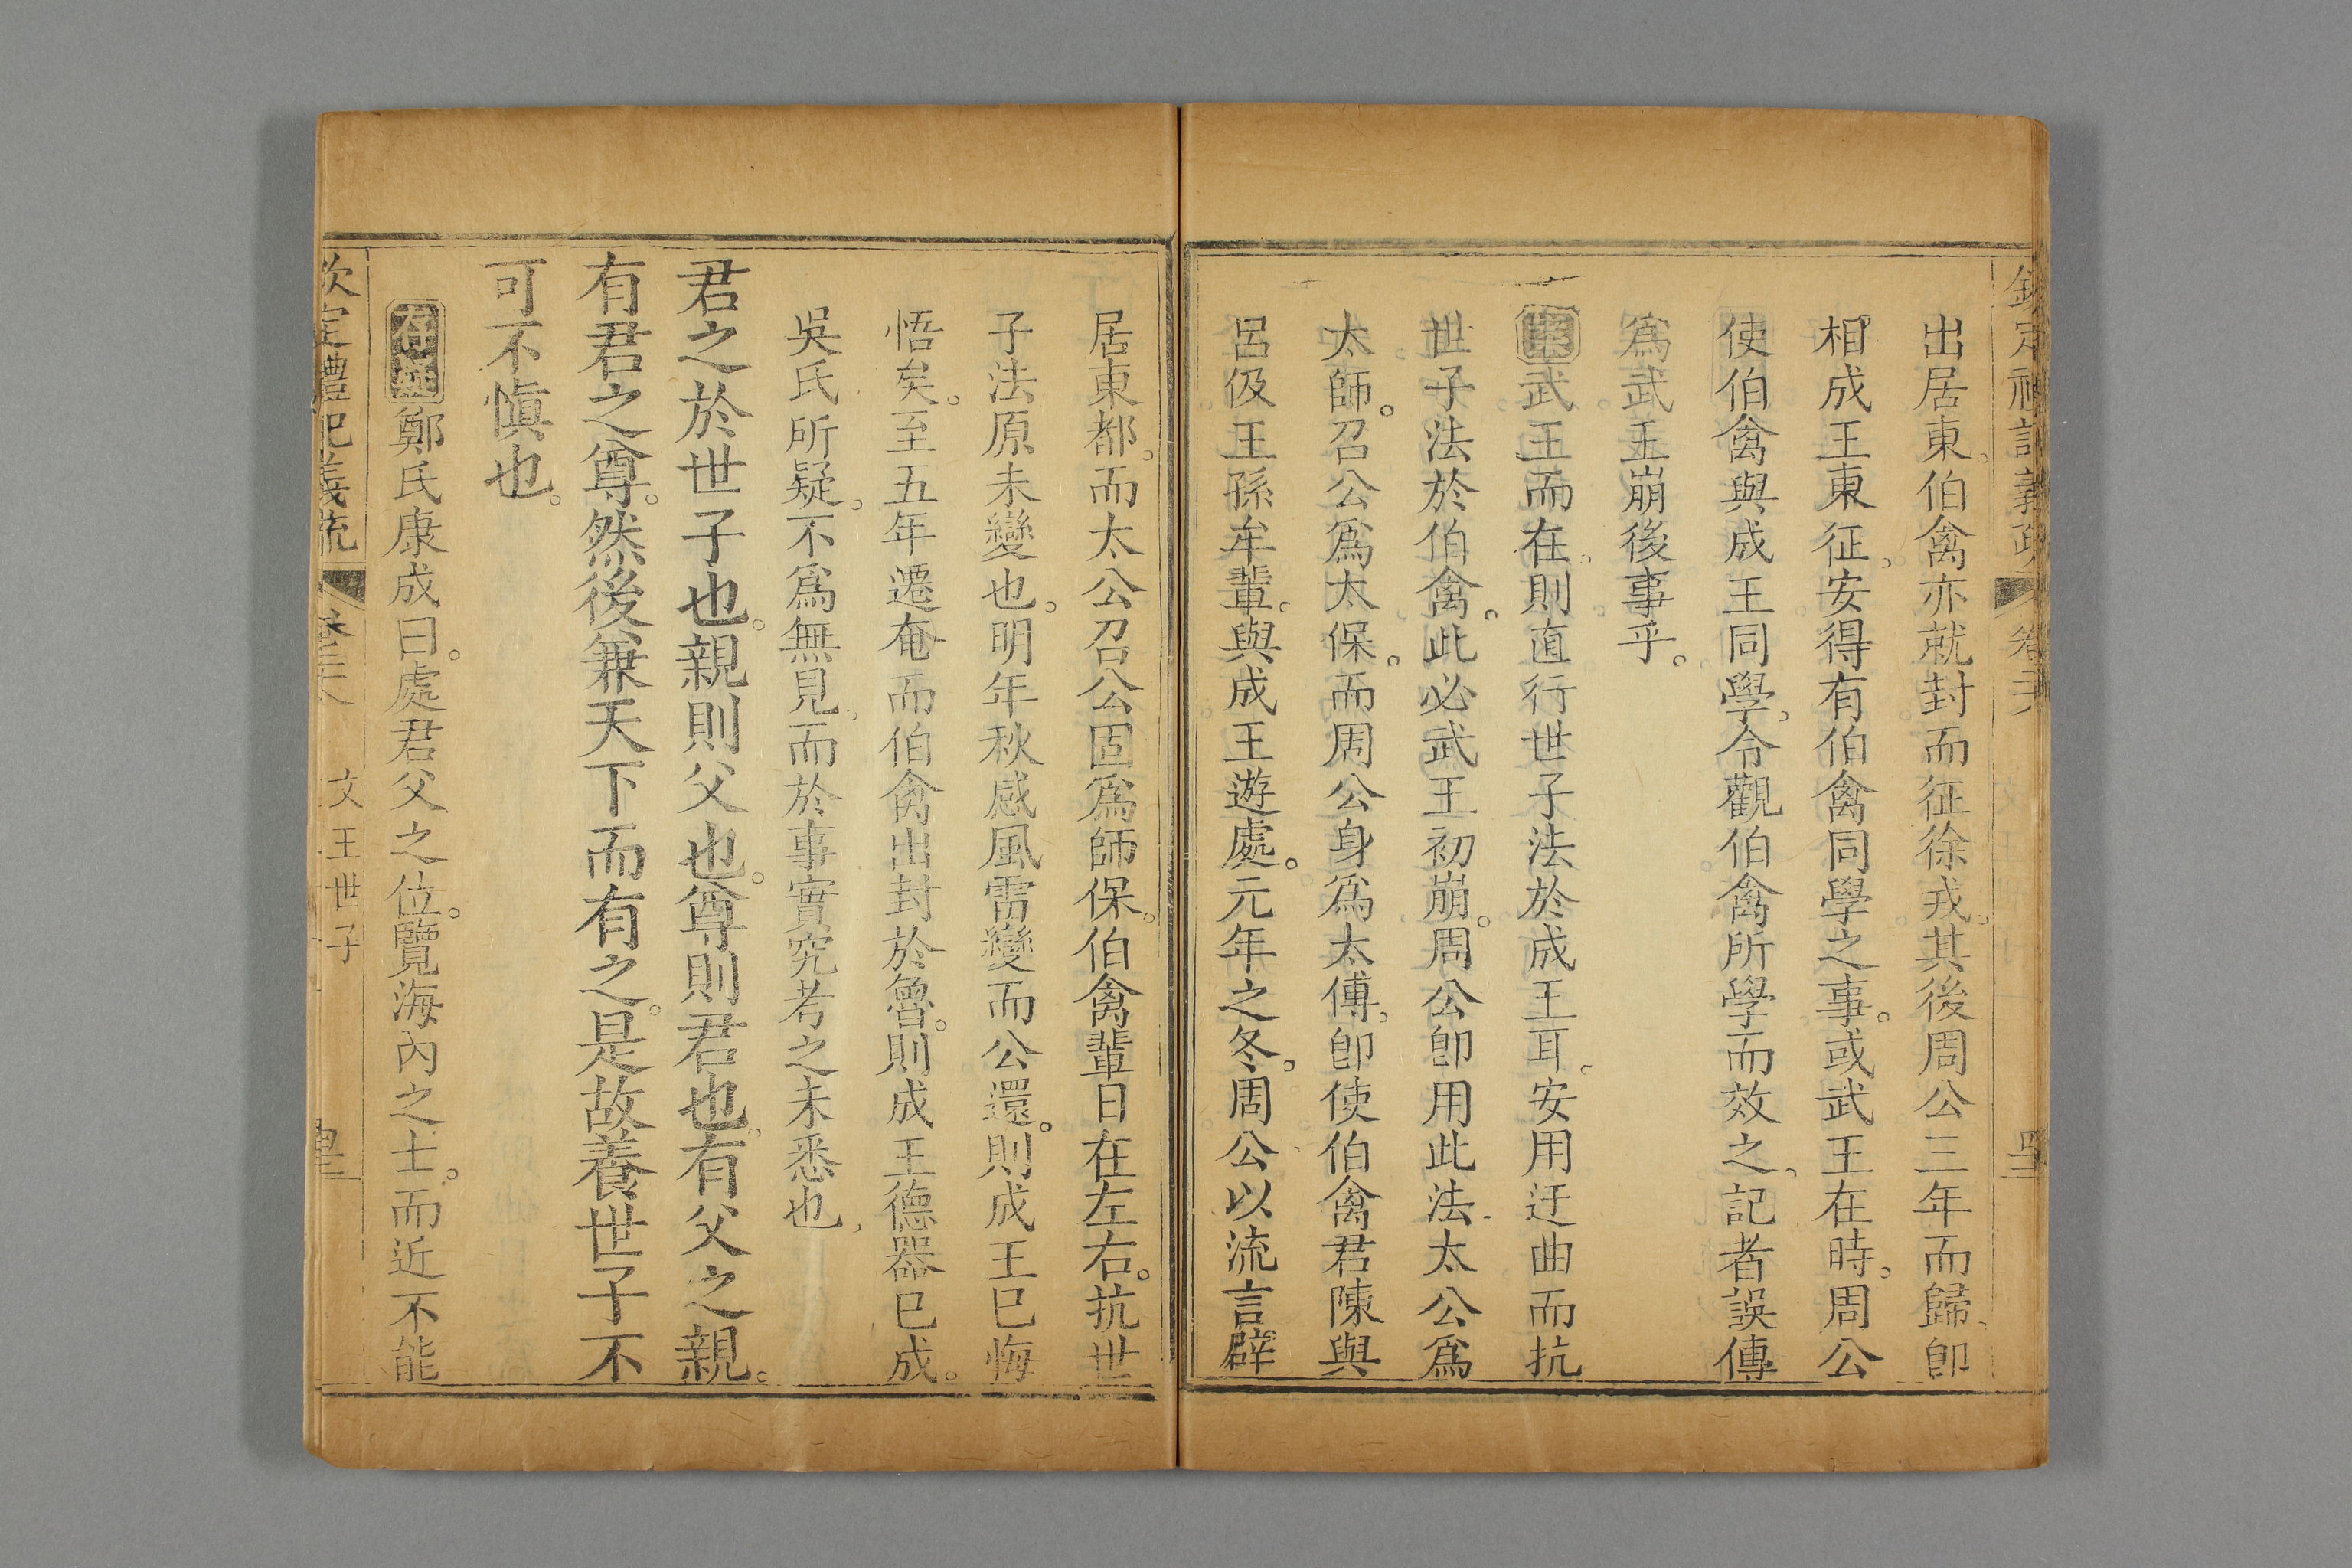 欽定禮記義疏 卷二十八 四三
出居東。伯禽亦就封而征徐戎。其後周公三年而歸、卽
相成王東征、安得有伯禽同學之事。或武王在時。周公
使伯禽與成王同學。令觀伯禽所學而效之、記者誤傳
爲武王崩後事乎。
案武王而在、則直行世子法於成王耳。安用迂曲而抗
世子法於伯禽。此必武王初崩。周公卽用此法、太公爲
太師。召公爲太保。而周公身爲太傅。卽使伯禽君陳與
呂伋王孫牟輩。與成王遊處。元年之冬。周公以流言辟
居東都。而太公召公固爲師保。伯禽輩日在左右。抗世
子法原未變也。明年秋感風雷變而公還。則成王已悔
悟矣。至五年遷奄而伯禽出封於魯。則成王德器已成。
吳氏所疑。不爲無見。而於事實究考之未悉也。
君之於世子也。親則父也。尊則君也。有父之親。
有君之尊。然後兼天下而有之。是故養世子不
可不愼也。
鄭氏康成曰。處君父之位。覽海內之士。而近不能
欽定禮記義疏 卷二十八 文王世子